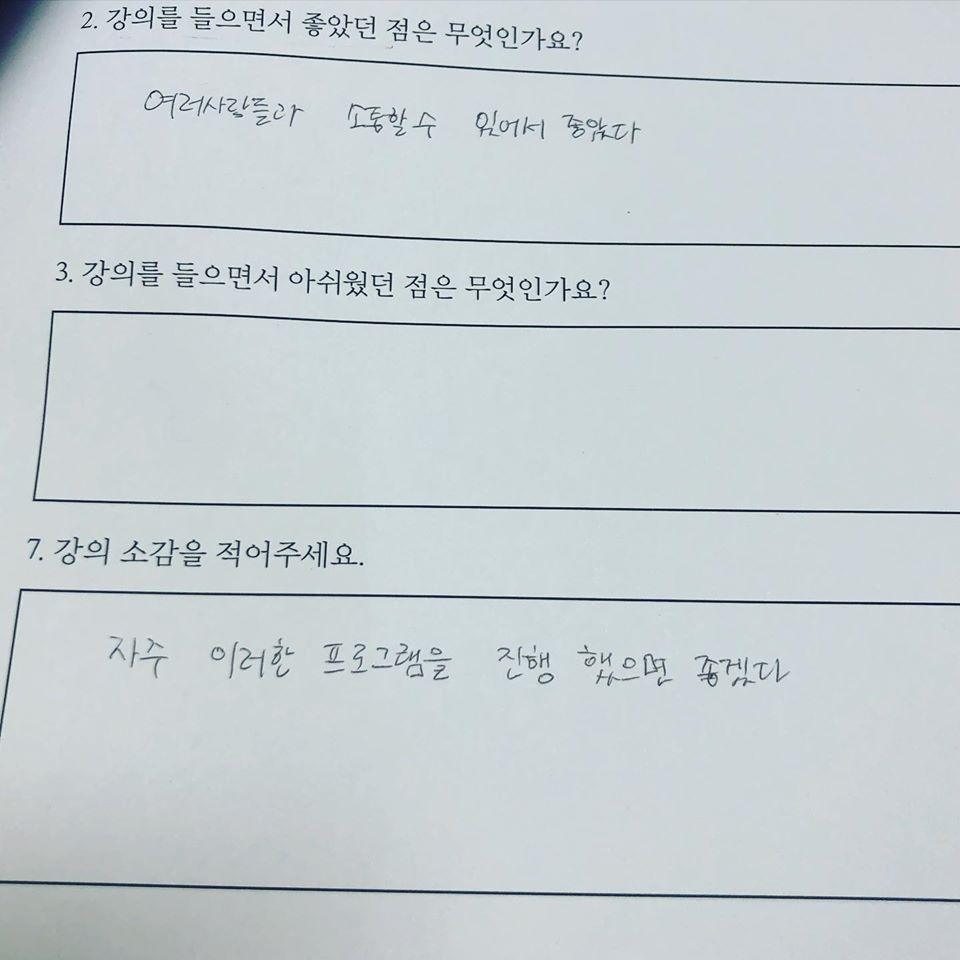 2. 강의를 들으면서 좋았던 점은 무엇인가요?
여러사람들과 소통할 수 있어서 좋았다
3. 강의를 들으면서 아쉬웠던 점은 무엇인가요?
7. 강의 소감을 적어주세요.
자주 이러한 프로그램을 진행 했으면 좋겠다